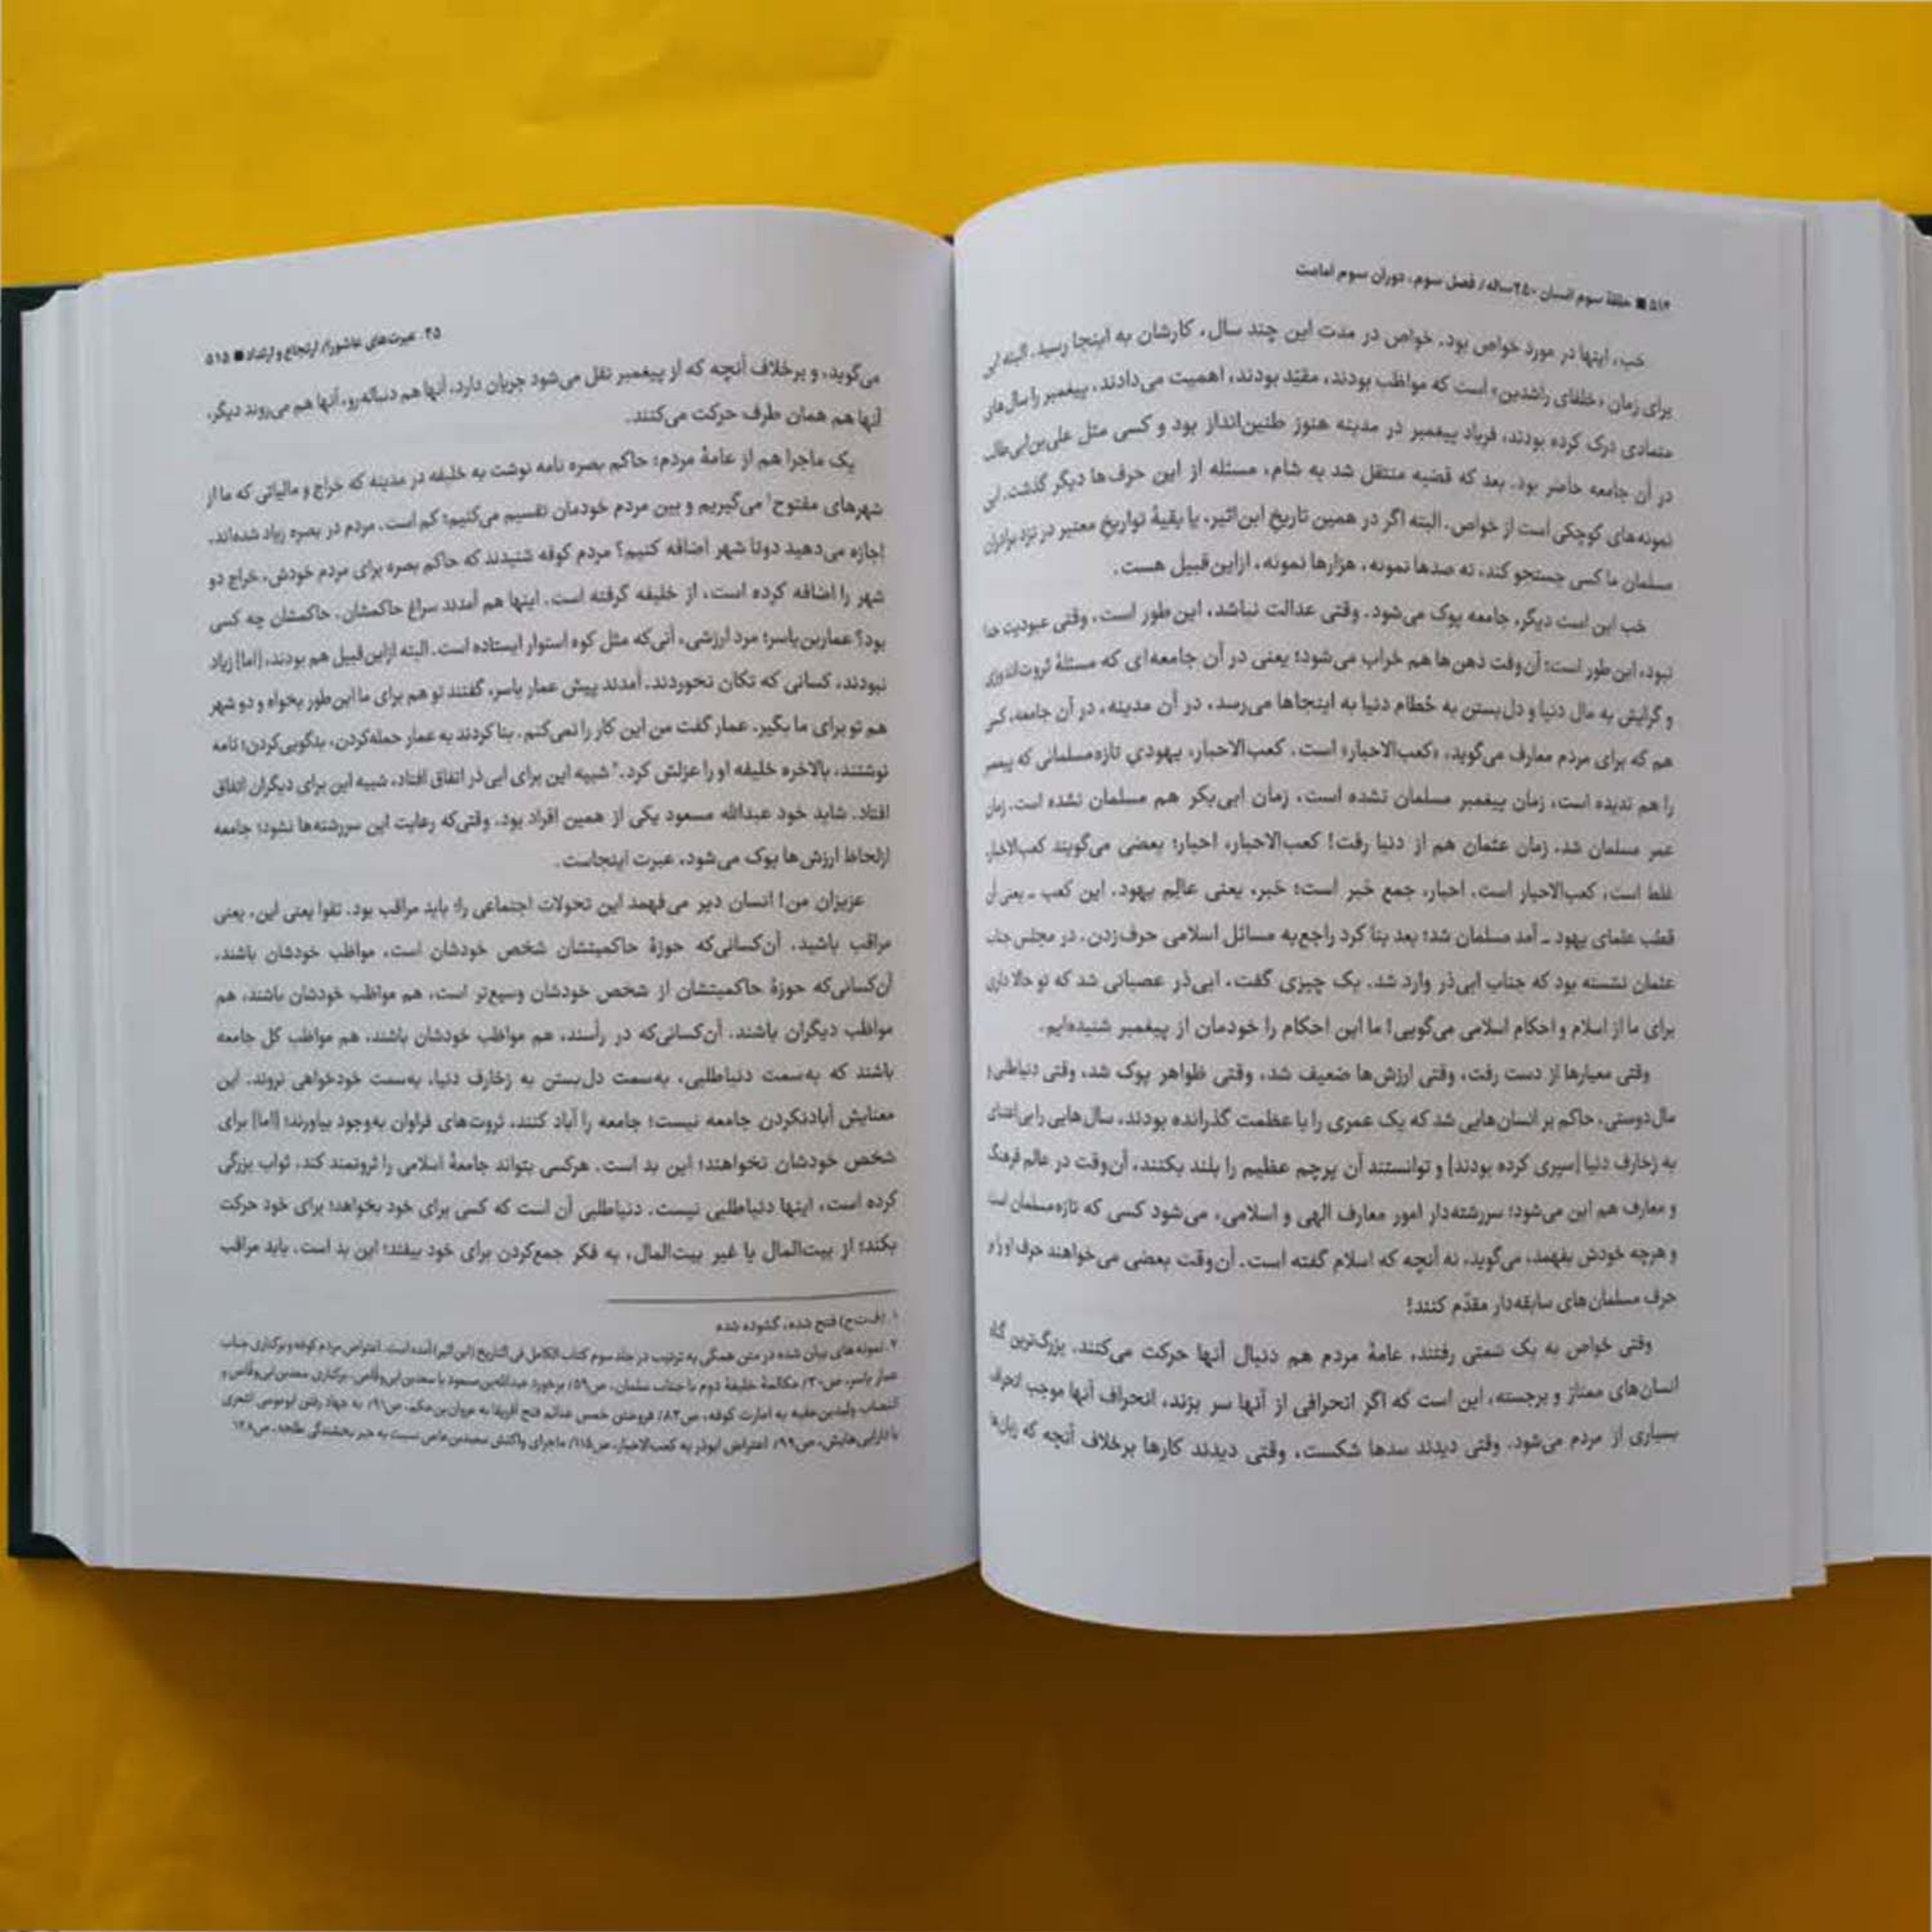 ۵۱۴ ■ حلقهٔ سوم انسان ۲۵۰ساله / فصل سوم، دوران سوم امامت
خب، اینها در مورد خواص بود. خواص در مدت این چند سال، کارشان به اینجا رسید. البته این
برای زمان «خلفای راشدین» است که مواظب بودند، مقیّد بودند، اهمیت می‌دادند، پیغمبر را سال‌های
متمادی درک کرده بودند، فریاد پیغمبر در مدینه هنوز طنین‌انداز بود و کسی مثل علی‌بن‌ابی‌طالب
در آن جامعه حاضر بود. بعد که قضیه منتقل شد به شام، مسئله از این حرف‌ها دیگر گذشت. این
نمونه‌های کوچکی است از خواص. البته اگر در همین تاریخ ابن‌اثیر، یا بقیهٔ تواریخ معتبر در نزد برادران
مسلمان ما کسی جستجو کند، نه صدها نمونه، هزارها نمونه، ازاین‌قبیل هست.
خب این است دیگر، جامعه پوک می‌شود. وقتی عدالت نباشد، این‌طور است، وقتی عبودیت خدا
نبود، این‌طور است؛ آن‌وقت ذهن‌ها هم خراب می‌شود؛ یعنی در آن جامعه‌ای که مسئلهٔ ثروت‌اندوزی
و گرایش به مال دنیا و دل‌بستن به حُطام دنیا به اینجاها می‌رسد، در آن مدینه، در آن جامعه، کسی
هم که برای مردم معارف می‌گوید، «کعب‌الاحبار» است. کعب‌الاحبار، یهودیِ تازه‌مسلمانی که پیغمبر
را هم ندیده است، زمان پیغمبر مسلمان نشده است، زمان ابی‌بکر هم مسلمان نشده است. زمان
عمر مسلمان شد، زمان عثمان هم از دنیا رفت! کعب‌الاحبار، احبار؛ بعضی می‌گویند کعب‌الاخبار،
غلط است، کعب‌الاحبار است. احبار، جمع حَبر است؛ حَبر، یعنی عالِم یهود. این کعب ـ یعنی آن
قطب علمای یهود ـ آمد مسلمان شد؛ بعد بنا کرد راجع‌به مسائل اسلامی حرف‌زدن. در مجلس جناب
عثمان نشسته بود که جناب ابی‌ذر وارد شد. یک چیزی گفت، ابی‌ذر عصبانی شد که تو حالا داری
برای ما از اسلام و احکام اسلامی می‌گویی! ما این احکام را خودمان از پیغمبر شنیده‌ایم.
وقتی معیارها از دست رفت، وقتی ارزش‌ها ضعیف شد، وقتی ظواهر پوک شد، وقتی دنیاطلبی و
مال‌دوستی، حاکم بر انسان‌هایی شد که یک عمری را با عظمت گذرانده بودند، سال‌هایی را بی‌اعتنای
به زخارف دنیا [سپری کرده بودند] و توانستند آن پرچم عظیم را بلند بکنند، آن‌وقت در عالم فرهنگ
و معارف هم این می‌شود؛ سررشته‌دار امور معارف الهی و اسلامی، می‌شود کسی که تازه‌مسلمان است
و هرچه خودش بفهمد، می‌گوید، نه آنچه که اسلام گفته است. آن‌وقت بعضی می‌خواهند حرف او را بر
حرف مسلمان‌های سابقه‌دار مقدّم کنند!
وقتی خواص به یک سَمتی رفتند، عامهٔ مردم هم دنبال آنها حرکت می‌کنند. بزرگ‌ترین گناه
انسان‌های ممتاز و برجسته، این است که اگر انحرافی از آنها سر بزند، انحراف آنها موجب انحراف
بسیاری از مردم می‌شود. وقتی دیدند سدها شکست، وقتی دیدند کارها برخلاف آنچه که زبان‌ها
۲۵. عبرت‌های عاشورا/ ارتجاع و ارتداد ■ ۵۱۵
می‌گوید، و برخلاف آنچه که از پیغمبر نقل می‌شود جریان دارد، آنها هم دنباله‌رو، آنها هم می‌روند دیگر،
آنها هم همان طرف حرکت می‌کنند.
یک ماجرا هم از عامهٔ مردم؛ حاکم بصره نامه نوشت به خلیفه در مدینه که خراج و مالیاتی که ما از
شهرهای مفتوح۱ می‌گیریم و بین مردم خودمان تقسیم می‌کنیم؛ کم است. مردم در بصره زیاد شده‌اند،
اجازه می‌دهید دوتا شهر اضافه کنیم؟ مردم کوفه شنیدند که حاکم بصره برای مردم خودش، خراج دو
شهر را اضافه کرده است، از خلیفه گرفته است. اینها هم آمدند سراغ حاکمشان. حاکمشان چه کسی
بود؟ عمار‌بن‌یاسر؛ مرد ارزشی، آنی‌که مثل کوه استوار ایستاده است. البته ازاین‌قبیل هم بودند، [اما] زیاد
نبودند، کسانی که تکان نخوردند. آمدند پیش عمار یاسر، گفتند تو هم برای ما این‌طور بخواه و دو شهر
هم تو برای ما بگیر. عمار گفت من این کار را نمی‌کنم. بنا کردند به عمار حمله‌کردن، بدگویی‌کردن؛ نامه
نوشتند، بالاخره خلیفه او را عزلش کرد.۲ شبیه این برای ابی‌ذر اتفاق افتاد، شبیه این برای دیگران اتفاق
افتاد. شاید خود عبدالله مسعود یکی از همین افراد بود. وقتی‌که رعایت این سررشته‌ها نشود؛ جامعه
ازلحاظ ارزش‌ها پوک می‌شود، عبرت اینجاست.
عزیزان من! انسان دیر می‌فهمد این تحولات اجتماعی را؛ باید مراقب بود. تقوا یعنی این، یعنی
مراقب باشید. آن‌کسانی‌که حوزهٔ حاکمیتشان شخص خودشان است، مواظب خودشان باشند،
آن‌کسانی‌که حوزهٔ حاکمیتشان از شخص خودشان وسیع‌تر است، هم مواظب خودشان باشند، هم
مواظب دیگران باشند. آن‌کسانی‌که در رأسند، هم مواظب خودشان باشند، هم مواظب کل جامعه
باشند که به‌سمت دنیاطلبی، به‌سمت دل‌بستن به زخارف دنیا، به‌سمت خودخواهی نروند. این
معنایش آبادنکردن جامعه نیست؛ جامعه را آباد کنند، ثروت‌های فراوان به‌وجود بیاورند؛ [اما] برای
شخص خودشان نخواهند؛ این بد است. هرکسی بتواند جامعهٔ اسلامی را ثروتمند کند، ثواب بزرگی
کرده است، اینها دنیاطلبی نیست. دنیاطلبی آن است که کسی برای خود بخواهد؛ برای خود حرکت
بکند؛ از بیت‌المال یا غیر بیت‌المال، به فکر جمع‌کردن برای خود بیفتد؛ این بد است. باید مراقب
۱. (ف‌ت‌ح) فتح شده، گشوده شده
۲. نمونه‌های بیان شده در متن همگی به ترتیب در جلد سوم کتاب الکامل فی التاریخ (ابن اثیر) آمده است. اعتراض مردم کوفه و برکناری جناب
عمار یاسر، ص۳۰/ مکالمهٔ خلیفهٔ دوم با جناب سلمان، ص۵۹/ برخورد عبدالله‌بن‌مسعود با سعدبن‌ابی‌وقّاص، برکناری سعدبن‌ابی‌وقّاص و
انتصاب ولیدبن‌عقبه به امارت کوفه، ص۸۲/ فروختن خمس غنائم فتح آفریقا به مروان‌بن‌حکم، ص۹۱/ به جهاد رفتن ابوموسی اشعری
با دارایی‌هایش، ص۹۹/ اعتراض ابوذر به کعب‌الاحبار، ص۱۱۵/ ماجرای واکنش سعیدبن‌عاص نسبت به خبر بخشندگی طلحه، ص۱۳۸